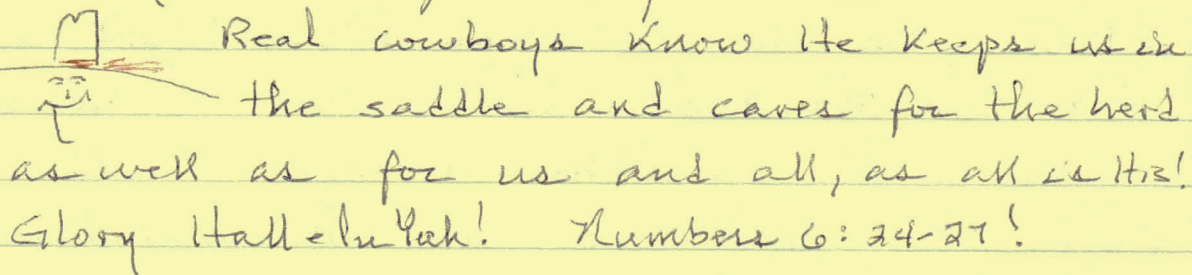 Real cowboys know He keeps us in
the saddle and cares for the herd
as well as for us and all, as all is His!
Glory Hall-elu Yah! Numbers 6:24-27!